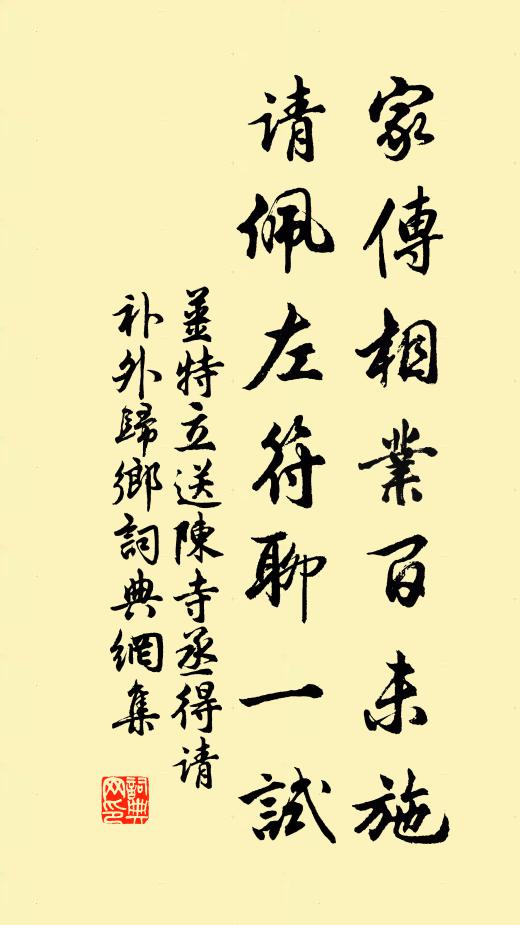 家傳相業百未施
请佩左符聊一試
薑特立送陳寺丞得请
补外歸鄉詞典網集
詞典网印